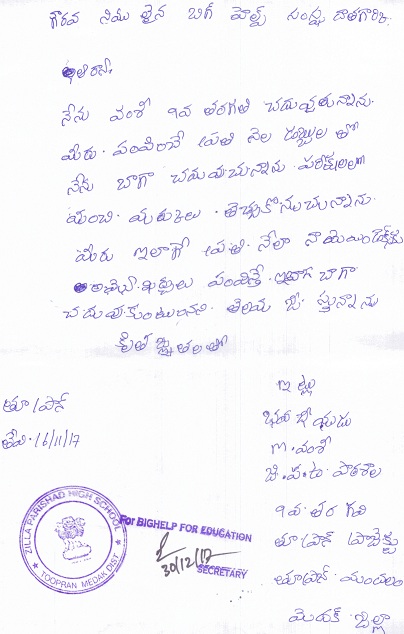 గౌరవ నియులైన బిగ్ హెల్ప్ సంస్థ దాతగారికి.
నేను వంశీ 9వ తరగతి చదువుతున్నాను.
మీరు. పంపించే ప్రతి నెల డబ్బుల తో
నేను బాగా చదువుచున్నాను పరీక్షలలో
మంచి. మార్కులు. తెచ్చుకొనుచున్నాను.
మీరు ఇలాగే ప్రతి. నెలా నా
ఖర్చులు పంపితే. ఇలాగ బాగా
చదువుకుంటానని. తెలియ జే స్తున్నాను
కృతజ్ఞతలతో
తూప్రాన్
తేది. 16/11/17
ఇట్లు
M. వంశీ
జి.ప.ఉ పాఠశాల
9వ తరగతి
తూప్రాన్ ప్రాజెక్టు
తూప్రాన్ మండలం
మెదక్ జిల్లా
ZILLA PARISHAD HIGH SCHOOL
★ TOOPRAN MEDAK DIST ★
For BIGHELP FOR EDUCATION
30/12/17
SECRETARY